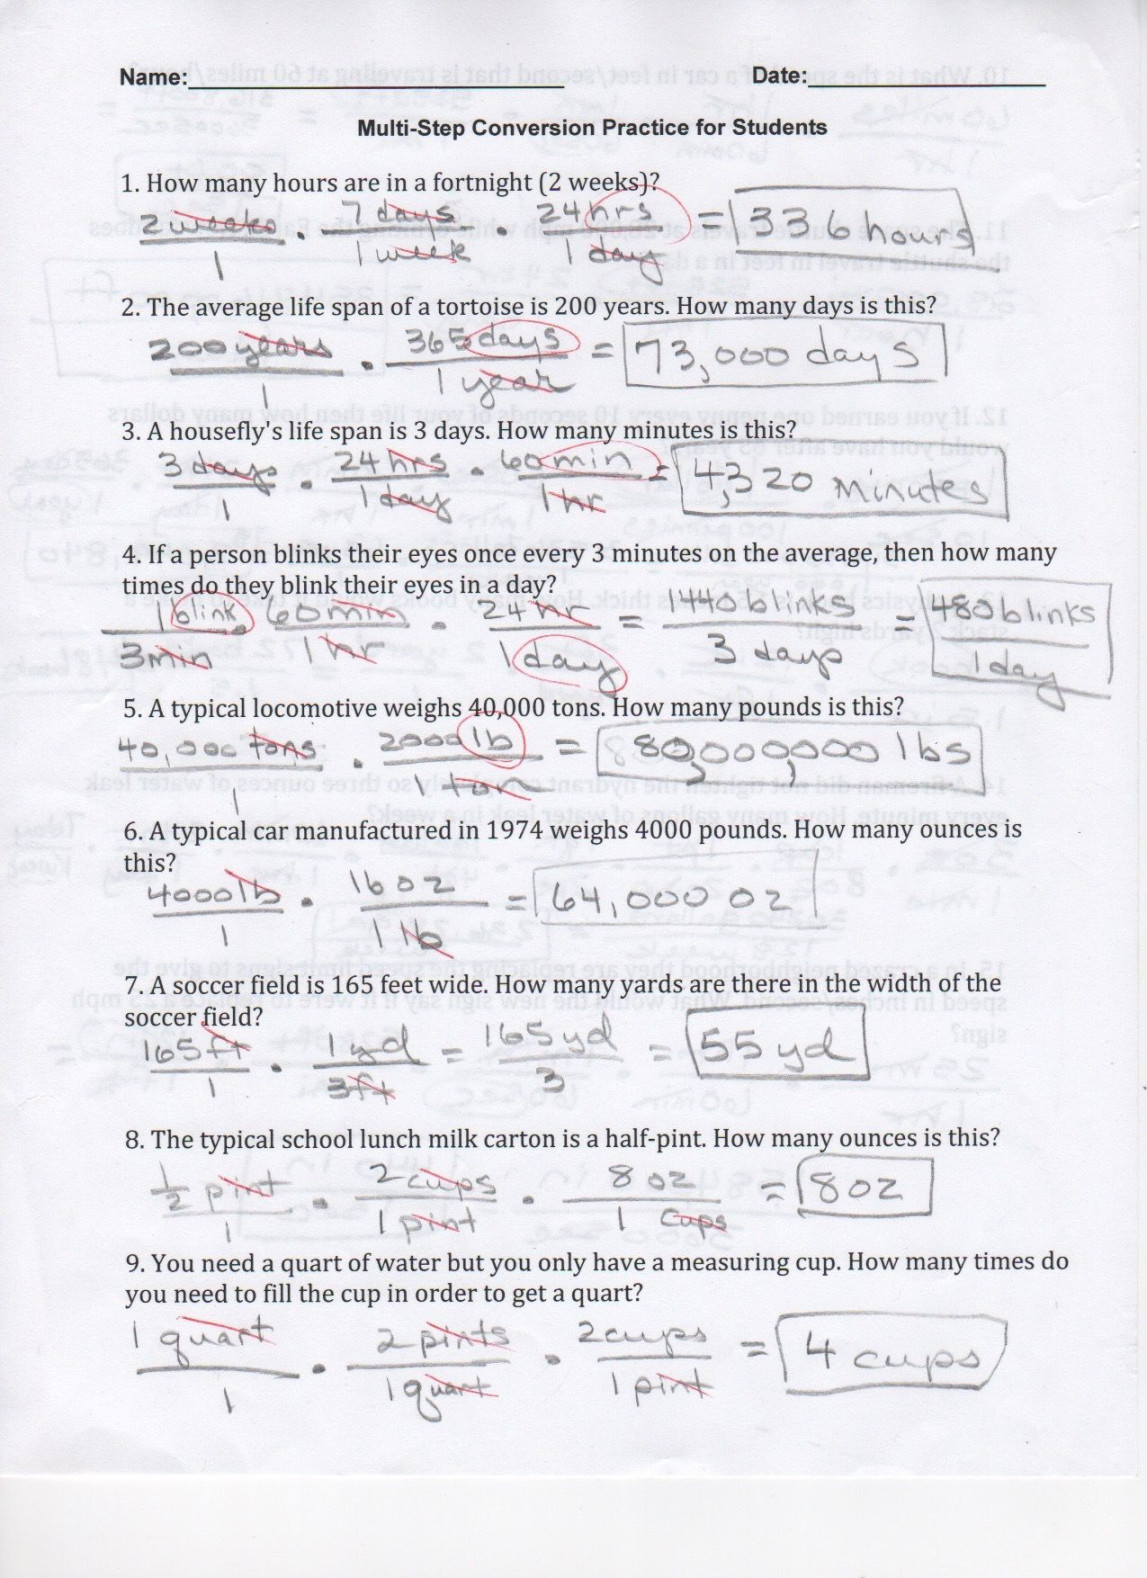 Name:
Date:
Multi-Step Conversion Practice for Students
1. How many hours are in a fortnight (2 weeks)?
2 weeks/1 · 7 days/1 week · 24 hrs/1 day = 336 hours
2. The average life span of a tortoise is 200 years. How many days is this?
200 years/1 · 365 days/1 year = 73,000 days
3. A housefly's life span is 3 days. How many minutes is this?
3 days/1 · 24 hrs/1 day · 60 min/1 hr = 4,320 minutes
4. If a person blinks their eyes once every 3 minutes on the average, then how many
times do they blink their eyes in a day?
1 blink/3 min · 60 min/1 hr · 24 hr/1 day = 1440 blinks/3 days = 480 blinks/1 day
5. A typical locomotive weighs 40,000 tons. How many pounds is this?
40,000 tons/1 · 2000 lb/1 ton = 80,000,000 lbs
6. A typical car manufactured in 1974 weighs 4000 pounds. How many ounces is
this?
4000 lb/1 · 16 oz/1 lb = 64,000 oz
7. A soccer field is 165 feet wide. How many yards are there in the width of the
soccer field?
165 ft/1 · 1 yd/3 ft = 165 yd/3 = 55 yd
8. The typical school lunch milk carton is a half-pint. How many ounces is this?
1/2 pint/1 · 2 cups/1 pint · 8 oz/1 cups = 8 oz
9. You need a quart of water but you only have a measuring cup. How many times do
you need to fill the cup in order to get a quart?
1 quart/1 · 2 pints/1 quart · 2 cups/1 pint = 4 cups